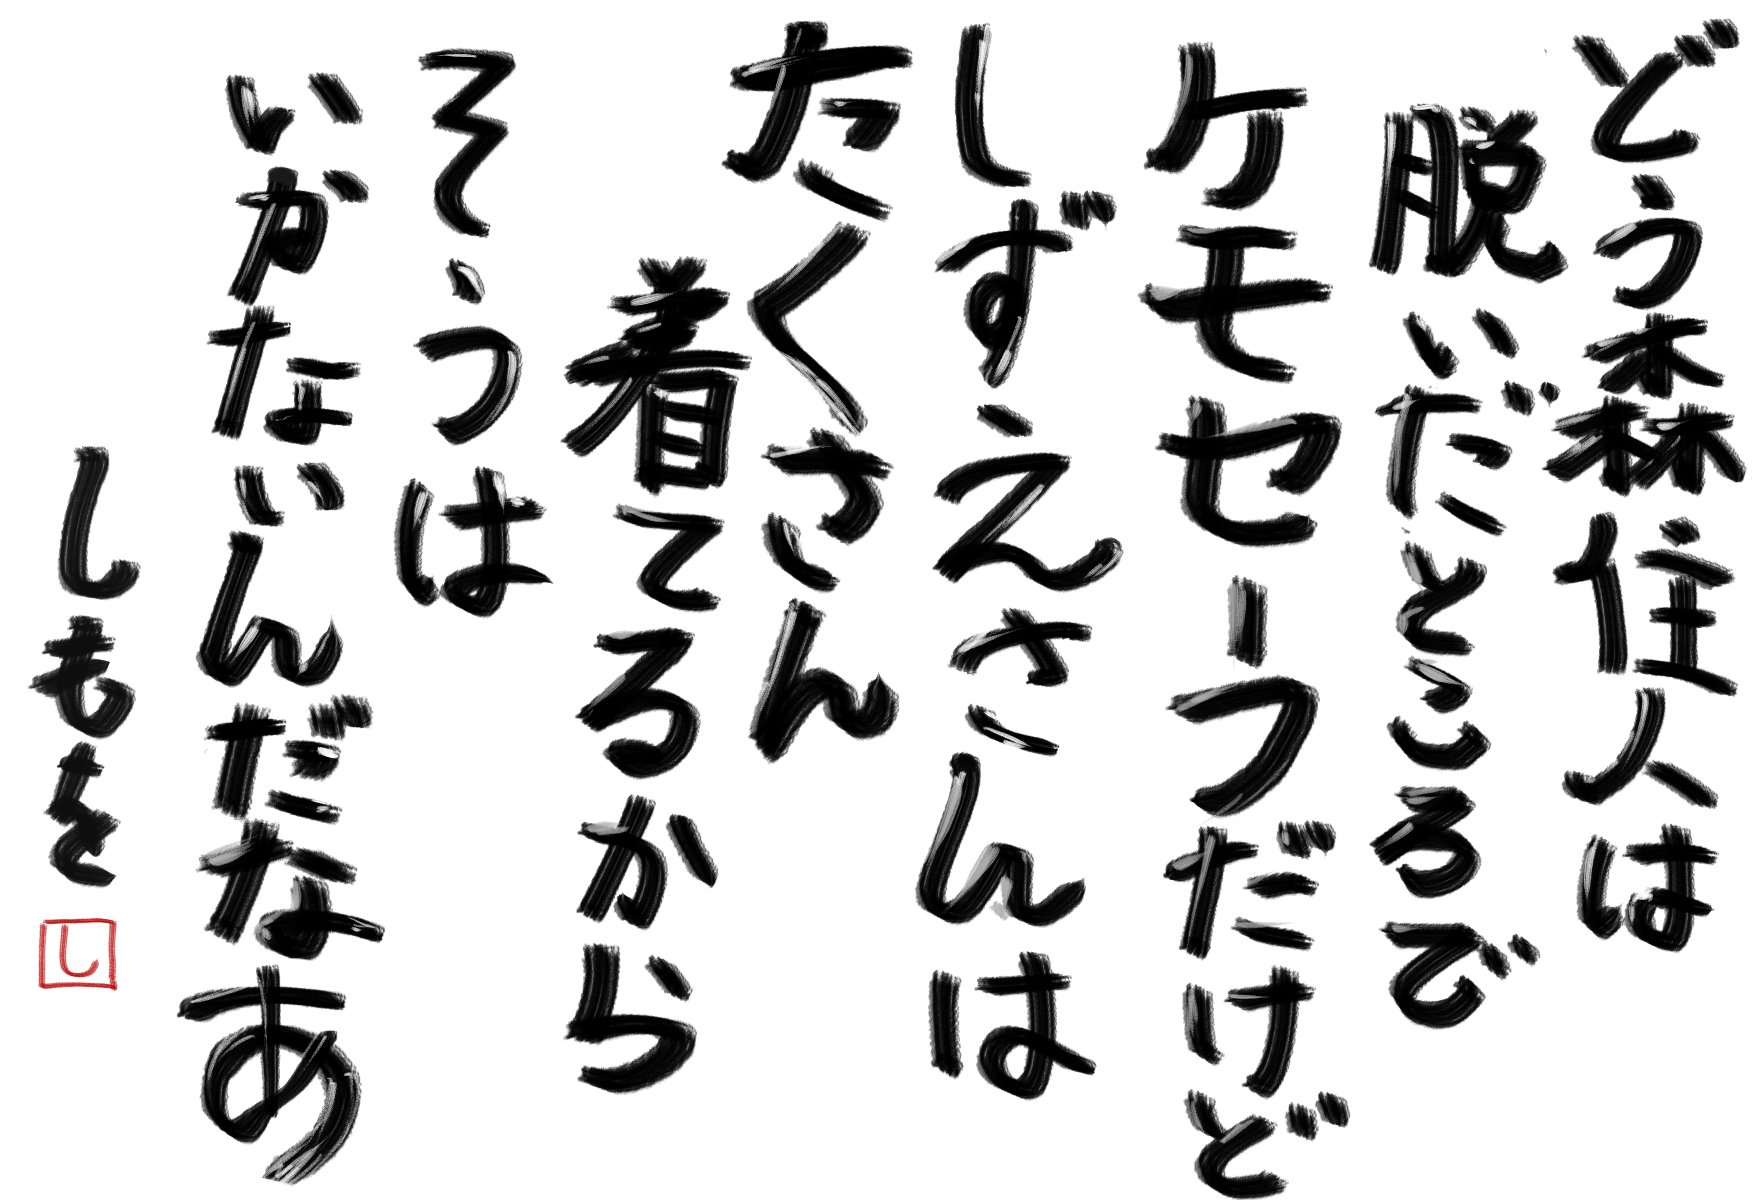 どう森住人は
脱いだところで
ケモセーフだけど
しずえさんは
たくさん
着てるから
そうは
いかないんだなあ
しもを
し